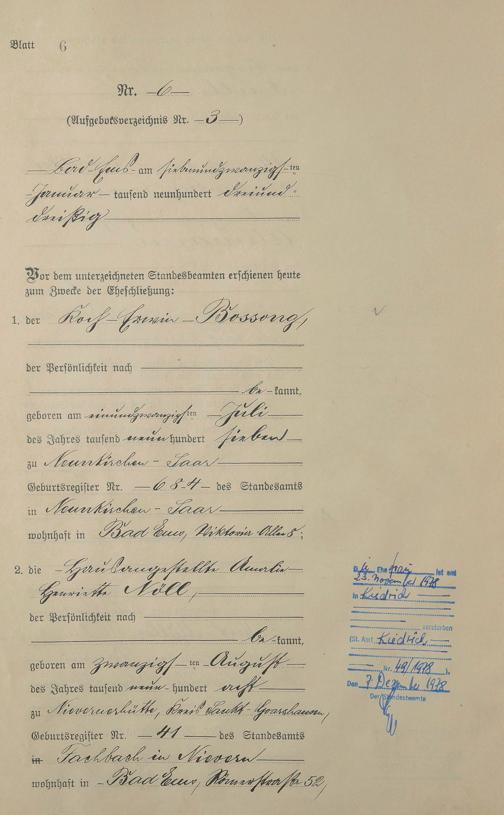 Blatt 6
Nr. —6—
(Aufgebotsverzeichnis Nr. —3—)
—Bad Ems— am siebenundzwanzigsten
Januar— tausend neunhundert dreiund-
dreißig
Vor dem unterzeichneten Standesbeamten erschienen heute
zum Zwecke der Eheschließung:
1. der Koch—Erwin—Bossong,
der Persönlichkeit nach
be-kannt,
geboren am einundzwanzigsten —Juli—
des Jahres tausend neunhundert sieben—
zu Neunkirchen-Saar
Geburtsregister Nr. —684— des Standesamts
in Neunkirchen-Saar
wohnhaft in Bad Ems, Viktoria Allee 5;
2. die —Hausangestellte Amalie
Henriette Nöll,
der Persönlichkeit nach
be-kannt,
geboren am zwanzigsten —August—
des Jahres tausend neunhundert acht—
zu Nievernerhütte, Kreis Sankt-Goarshausen,
Geburtsregister Nr. —41— des Standesamts
in Fachbach in Nievern
wohnhaft in —Bad Ems, Römerstraße 52,
Ehefrau ist am
23. November 1978
in Kiedrich
verstorben
(St. Amt Kiedrich
Nr. 49/1978).
Den 7. Dezember 1978
Der Standesbeamte